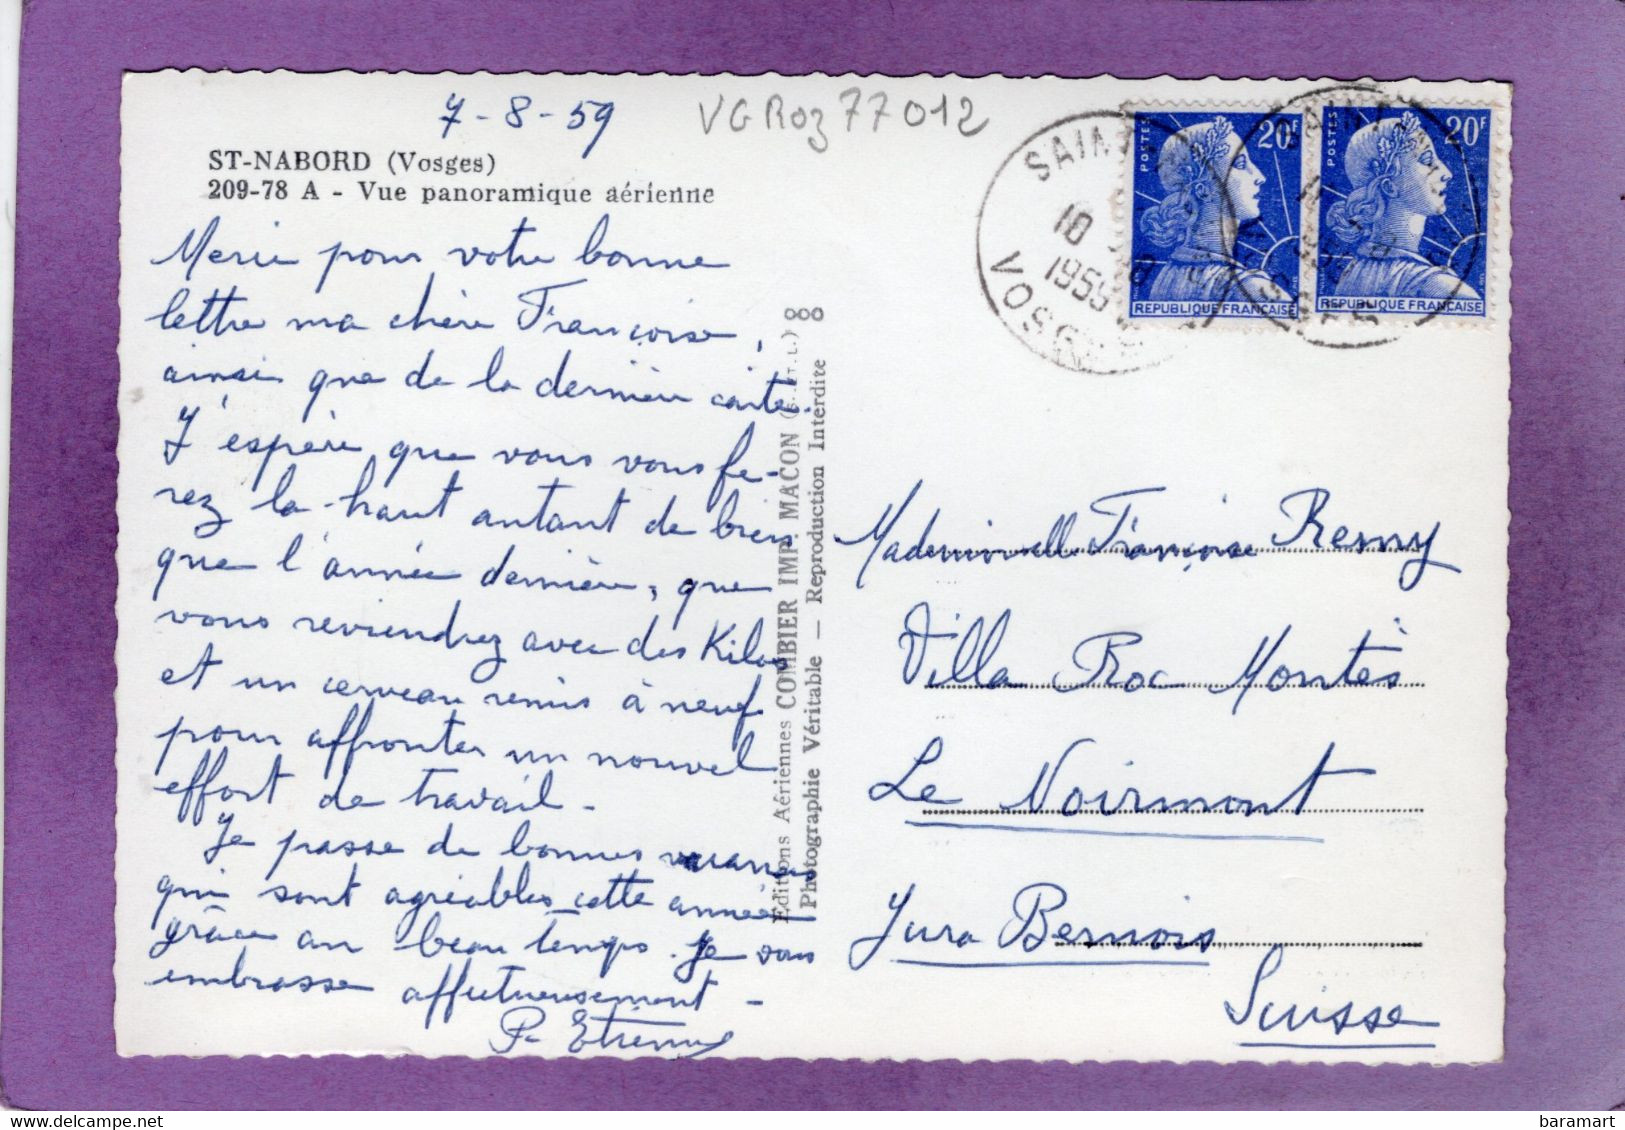 7-8-59
VGRoz 77012
ST-NABORD (Vosges)
209-78 A - Vue panoramique aérienne
Merci pour votre bonne
lettre ma chère Françoise,
ainsi que de la dernière carte.
J'espère que vous vous fe-
rez la-haut autant de bien
que l'année dernière, que
vous reviendrez avec des Kilos
et un cerveau remis à neuf
pour affronter un nouvel
effort de travail -
Je passe de bonnes vacances
qui sont agréables cette année
grâce au beau temps. Je vous
embrasse affectueusement -
P. Etienne
Editions Aériennes COMBIER IMP. MACON
Photographie Véritable — Reproduction Interdite
SAINT
10
1959
VOSGES
POSTES
20F
REPUBLIQUE FRANÇAISE
POSTES
20F
REPUBLIQUE FRANÇAISE
Mademoiselle Françoise Remy
Villa Roc Montès
Le Noirmont
Jura Bernois
Suisse
baramart